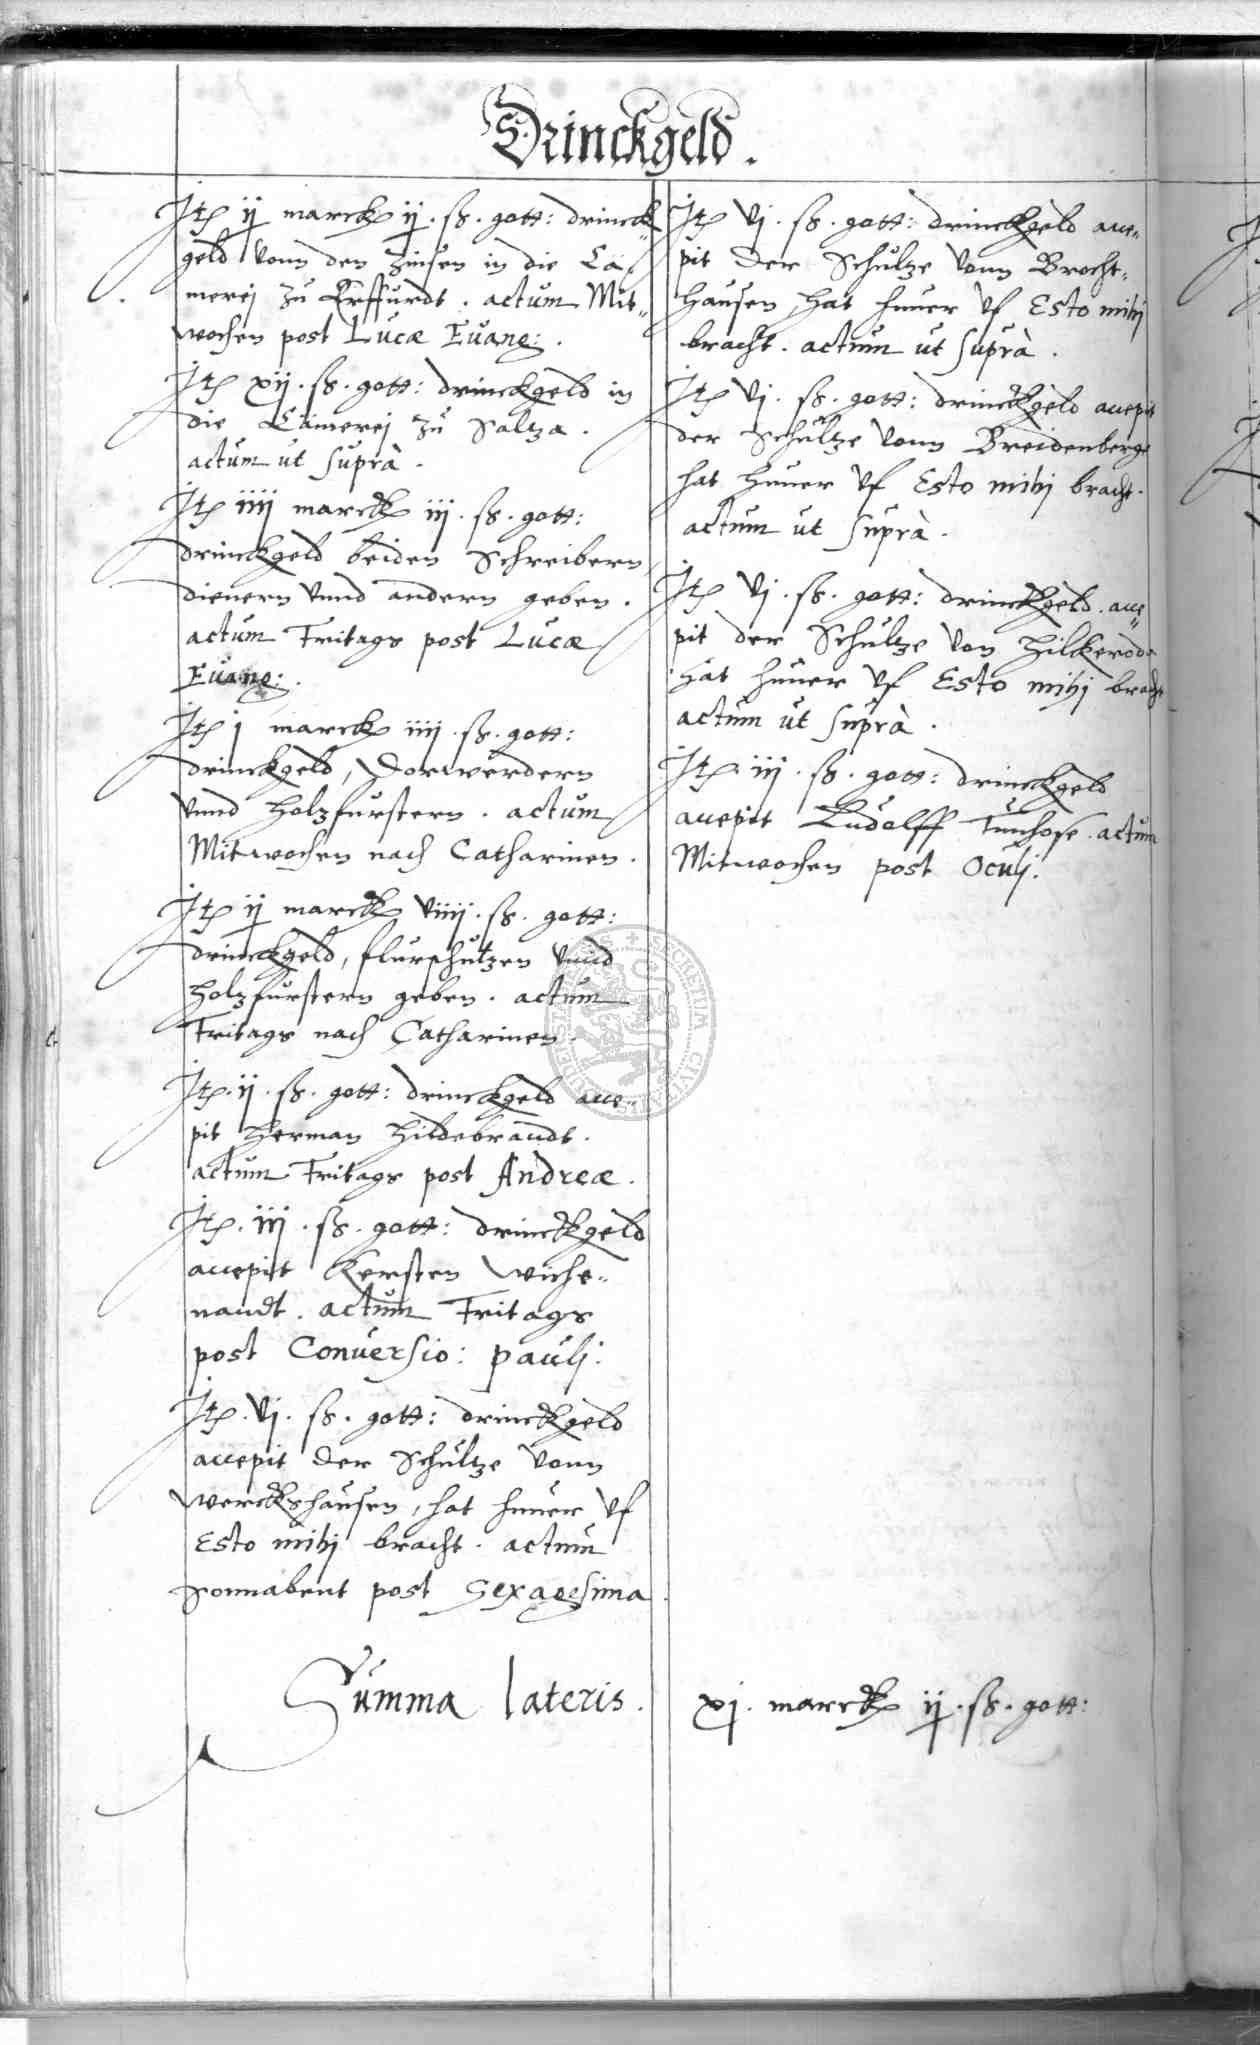 Drinckgeld.
Jt ij marck ij. ß. gott: drinck
geld vonn den Zinsen in die Cä
merej zu Erffurdt. actum Mit„
wochen post Lucæ Euang:.
Jt xij. ß. gott: drinckgeld in
die Cämerej zu Saltza.
actum ut suprà.
Jt iiij marck iij. ß. gott:
drinckgeld beiden Schreibern
dienern vnnd andern geben.
actum Fritags post Lucæ
Euang:.
Jt j marck iiij. ß. gott:
drinckgeld, Dorwerdern
vnnd holzfurstern. actum
Mitwochen nach Catharinen.
Jt ij marck viiij. ß. gott:
drinckgeld, flurschützen vnnd
holzfurstern geben. actum
Fritags nach Catharinen.
Jt. ij. ß. gott: drinckgeld acce„
pit Herman Hildebrandt.
actum Fritags post Andreæ.
Jt. iij. ß. gott: drinckgeld
accepit Kersten Wiche„
nandt. actum Fritags
post Conuersio: paulj:
Jt. vj. ß. gott: drinckgeld
accepit der Schultze vonn
Werckshausen, hat heuer vf
Esto mihj bracht. actum
Sonnabent post Sexagesima.
Jt vj. ß. gott: drinckgeld acce„
pit der Schultze vonn Brocht„
hausen, hat heuer vf Esto mihj
bracht. actum ut suprà.
Jt vj. ß. gott: drinckgeld accepit
der Schultze vonn Breidenberge
hat heuer vf Esto mihj bracht.
actum ut suprà.
Jt vj. ß. gott: drinckgeld. acce„
pit der Schultze von Hilkerode
hat heuer vf Esto mihj bracht
actum ut suprà.
Jt. iij. ß. gott: drinckgeld
accepit Ludolff Tunhose. actum
Mitwochen post Oculj.
Summa lateris. xj. marck ij. ß. gott: